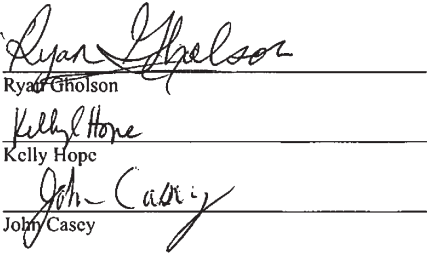 Ryan Gholson
Ryan Gholson
Kelly Hope
Kelly Hope
John Casey
John Casey